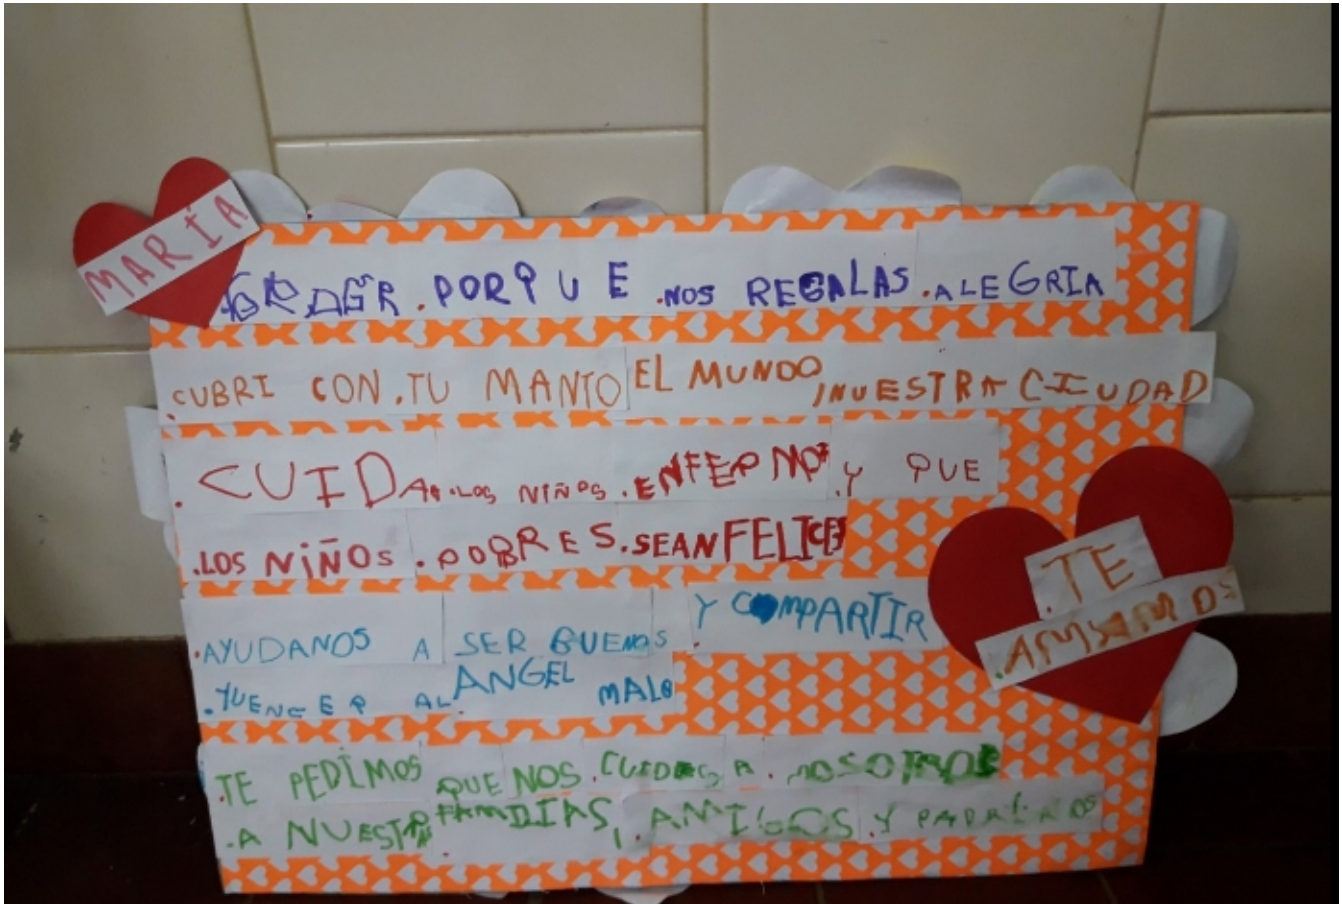 MARÍA
PORQUE .NOS REGALAS .ALEGRIA
.CUBRI CON .TU MANTO EL MUNDO, NUESTRA CIUDAD
.CUIDA A .LOS NIÑOS .ENFERMOS .Y QUE
.LOS NIÑOS .POBRES .SEAN FELICES
.AYUDANOS A SER BUENOS Y COMPARTIR
.Y VENCER AL ANGEL MALO
.TE PEDIMOS QUE NOS .CUIDES A .NOSOTROS
.A NUESTRA FAMILIAS, .AMIGOS .Y PADRINOS
.TE
.AMAMOS